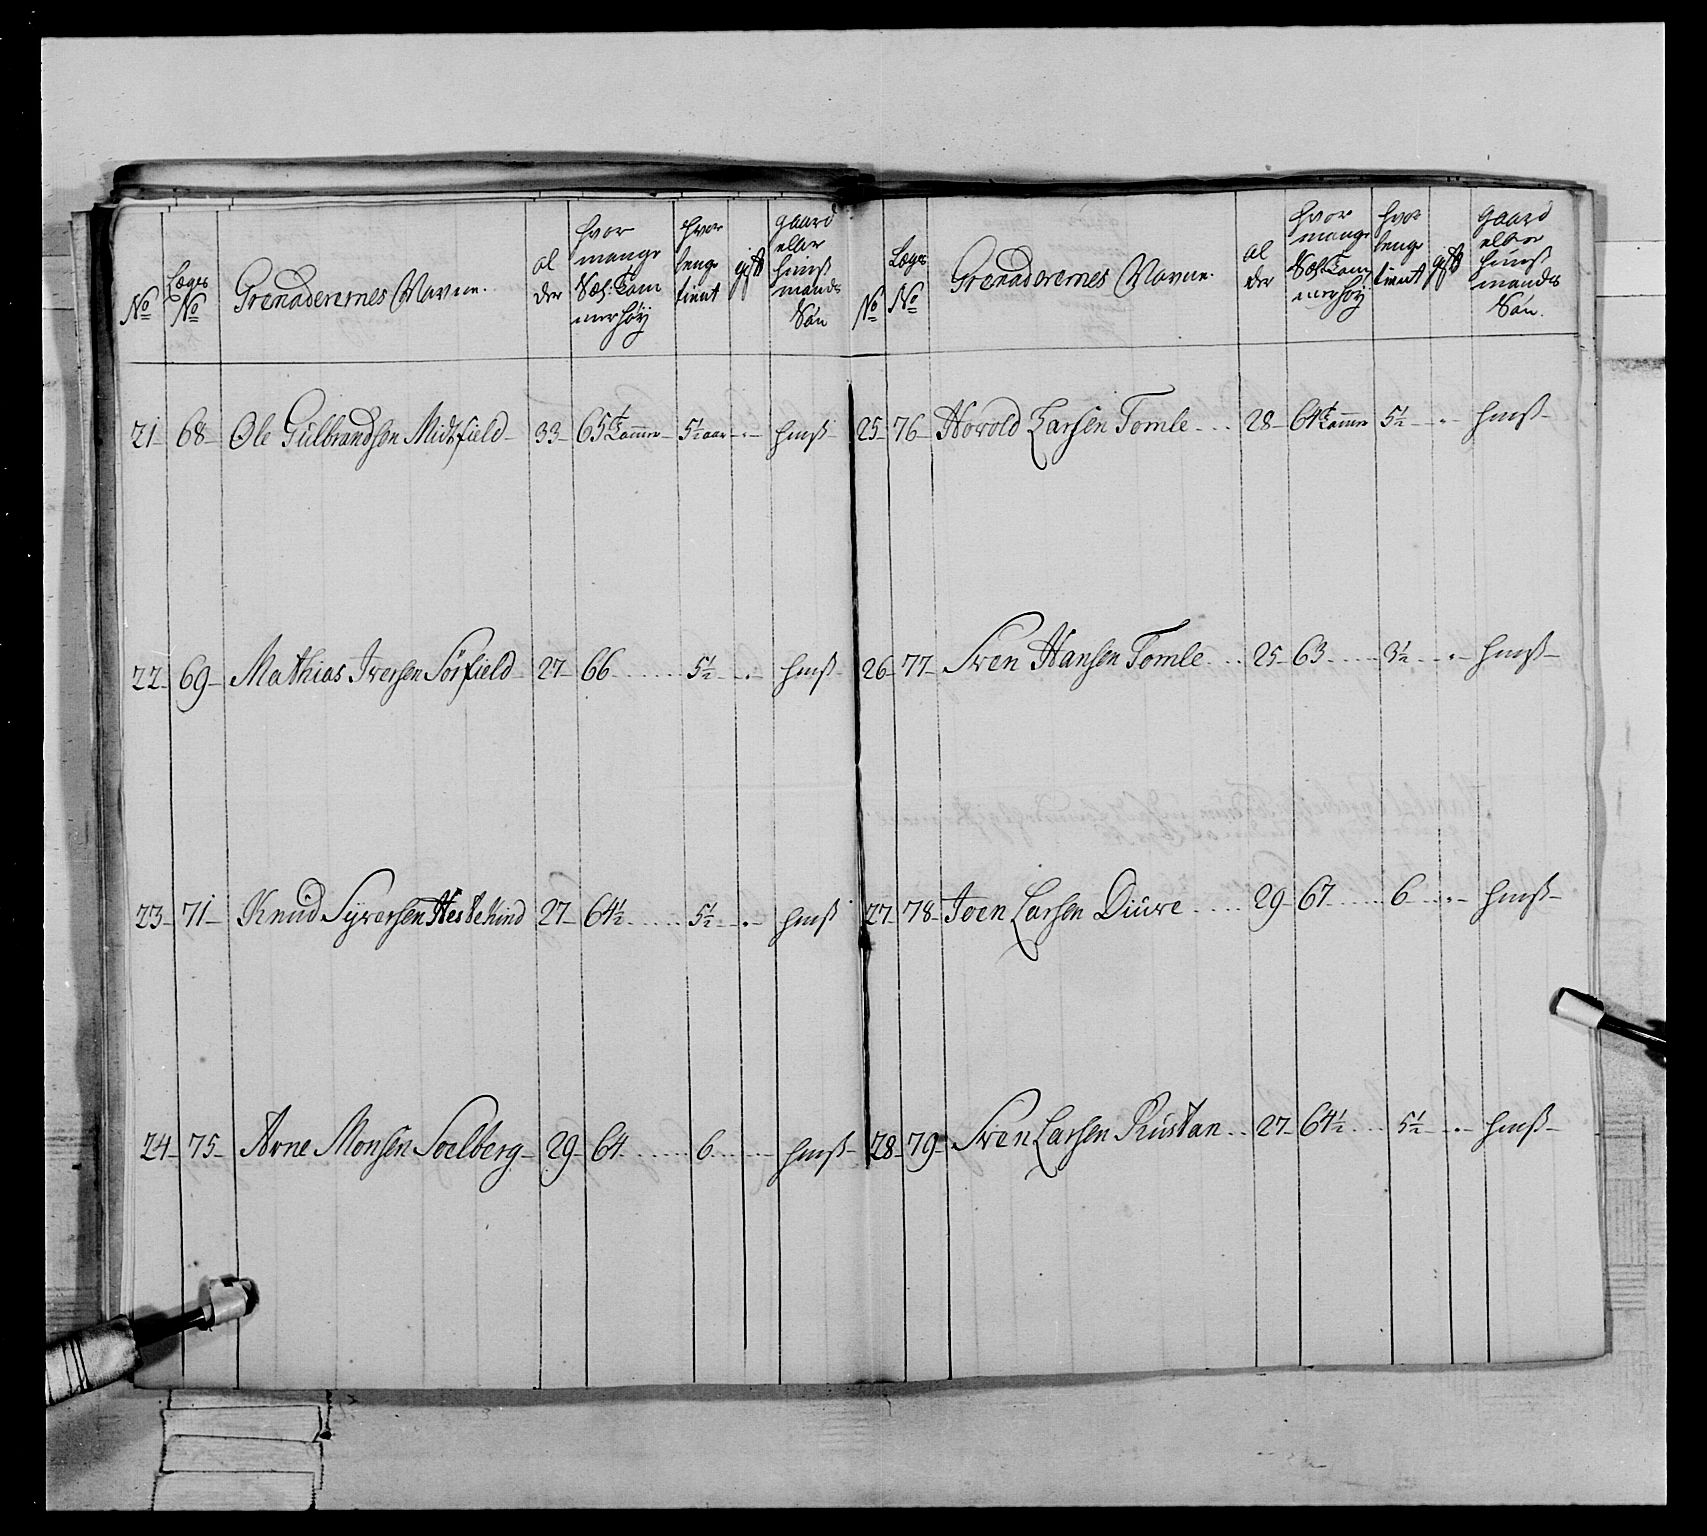 No | Læges No | Grenaderernes Navne. | al der | hvor mange Sæl: Tom mer høy | hvor lenge tient | gift | gaard eller huus mands Søn
21 - 68 - Ole Gulbrandsen Midtfield - 33 - 65 1/2 Tomme - 5 1/2 aar - . - hmß -
22 - 69 - Mathias Iversen Sörfield - 27 - 66 ..... 5 1/2 - . - hmß
23 - 71 - Knud Syversen Hestekind 27 - 64 1/2 ..... 5 1/2 - . - hmß
24 - 75 - Arne Monsen Soelberg - 29 - 64 ..... 6 ..... hmß -
No | Læges No | Grenaderernes Navne. | al der | hvor mange Sæl: Tom mer høy | hvor lenge tient | gift | gaard eller huus mandes Søn.
25 - 76 - Horold Larsen Tomle ... 28 - 64 1/2 Tomme 5 1/2 - . - hmß -
26 - 77 - Sven Hansen Tomle ... 25 - 63 ..... 3 1/2 - . - hmß -
27 - 78 - Joen Larsen Diúve .... 29 - 67 ..... 6 ... - hmß -
28 - 79 - Sven Larsen Rustan .. 27 - 64 1/2 ... 5 1/2 - . - hmß -